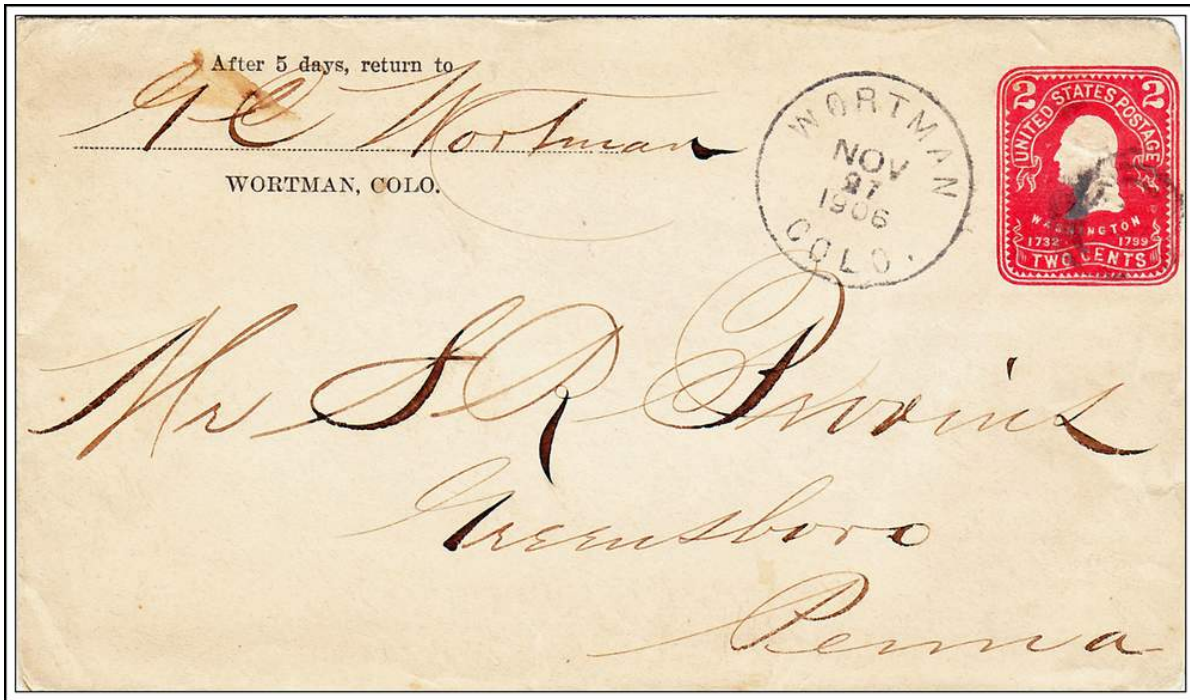 After 5 days, return to
G C Wortman
WORTMAN, COLO.
WORTMAN
NOV
27
1906
COLO.
2 2
UNITED STATES POSTAGE
WASHINGTON
1732 1799
TWO CENTS
Mr S R
Greensboro
Penna